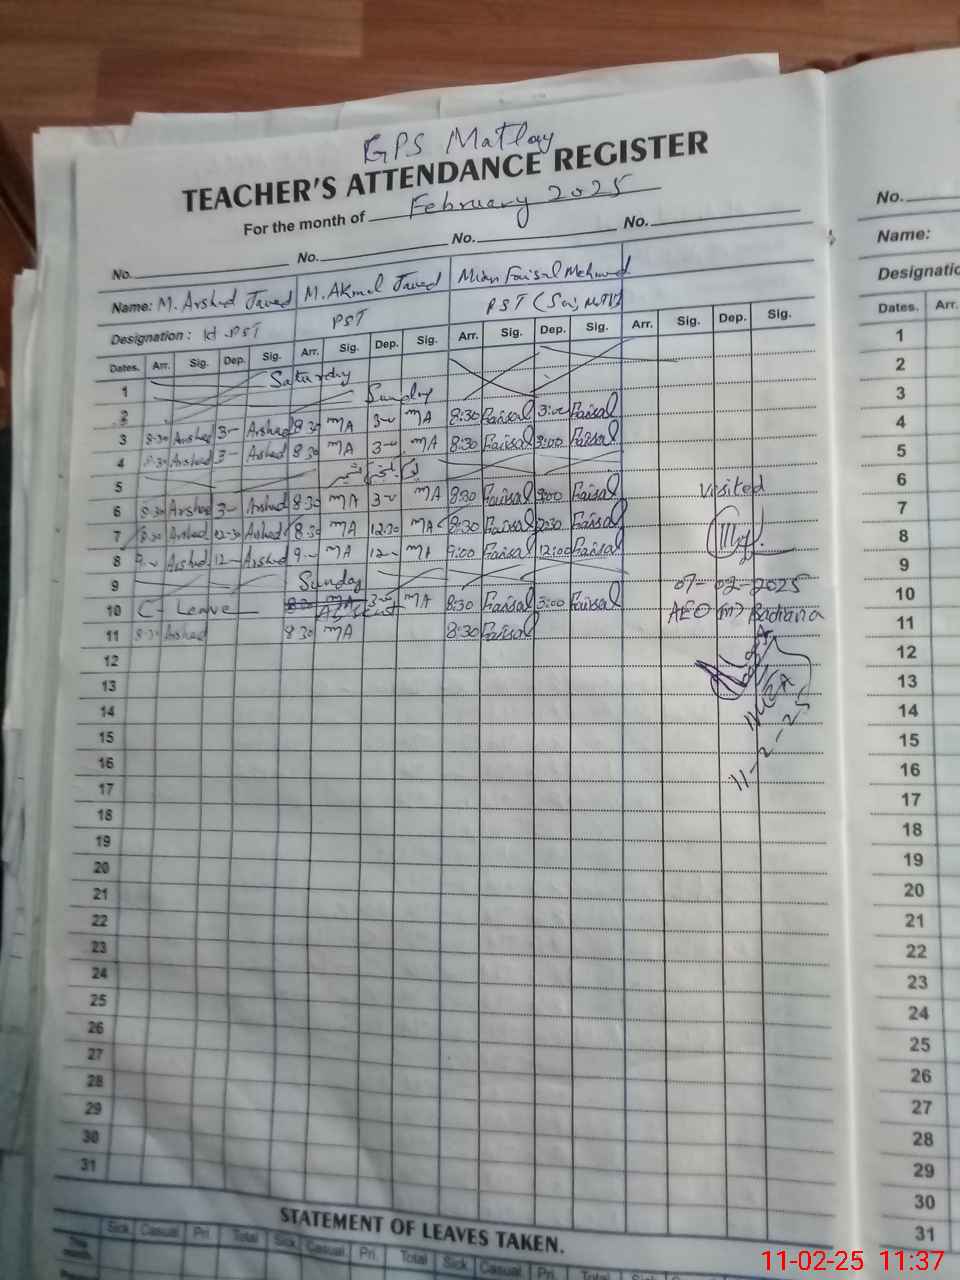 GPS Matlay
TEACHER'S ATTENDANCE REGISTER
For the month of February 2025
No. No. No. No.
Name: M. Arshad Javed M. Akmal Javed Mian Faisal Mehmood
Designation: Hd-PST PST PST
Dates. Arr. Sig. Dep. Sig. Arr. Sig. Dep. Sig. Arr. Sig. Dep. Sig. Arr. Sig. Dep. Sig.
1 Saturday
2 Sunday
3 8:30 Arshad 3- Arshad 8:30 MA 3- MA 8:30 Faisal 3:00 Faisal
4 8:30 Arshad 3- Arshad 8:30 MA 3- MA 8:30 Faisal 3:00 Faisal
5 یوم یکجہتی کشمیر
6 8:30 Arshad 3- Arshad 8:30 MA 3- MA 8:30 Faisal 3:00 Faisal
7 8:30 Arshad 12-30 Arshad 8:30 MA 12.30 MA 8:30 Faisal 12:30 Faisal
8 9- Arshad 12- Arshad 9- MA 12- MA 9:00 Faisal 12:00 Faisal
9 Sunday
10 C-Leave 8:30 MA Absent 3- MA 8:30 Faisal 3:00 Faisal
11 8:30 Arshad 8:30 MA 8:30 Faisal
12
13
14
15
16
17
18
19
20
21
22
23
24
25
26
27
28
29
30
31
Visited
07-02-2025
AEO (M) Badiana
MEA
11-2-25
STATEMENT OF LEAVES TAKEN.
This month. Sick Casual Pri. Total Sick Casual Pri. Total Sick Casual Pri. Total Sick
No.
Name:
Designatio
Dates. Arr.
1
2
3
4
5
6
7
8
9
10
11
12
13
14
15
16
17
18
19
20
21
22
23
24
25
26
27
28
29
30
31
11-02-25 11:37